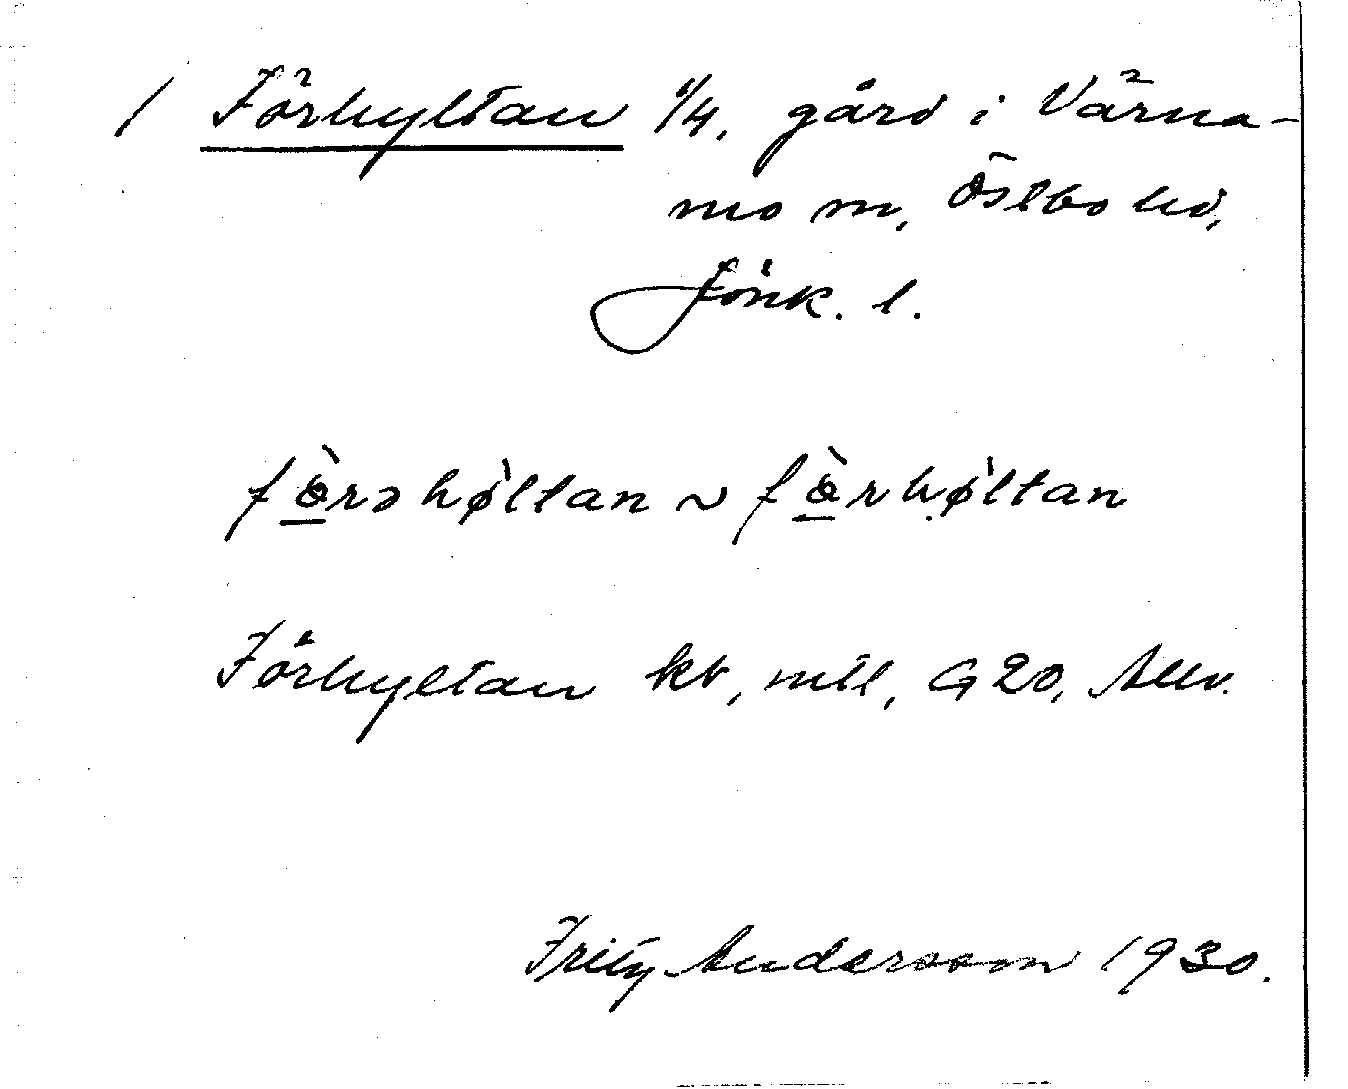 1 Förhyltan 1/4, gård i Värna-
mo sn, Östbo hd,
Jönk. l.
fö̀rəhǿltan ~ fö̀rhǿltan
Förhyltan kb, mtl, G 20,
Fritz Andersson 1930.